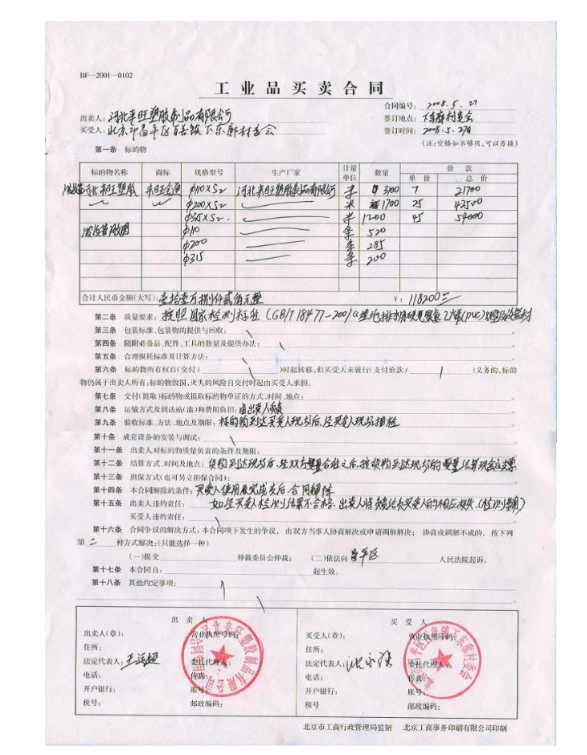 BF—2001—0102
工业品买卖合同
合同编号: 2008.5.27
出卖人: 河北来旺塑胶制品有限公司
签订地点:
买受人: 北京市昌平区百善镇下东廓村委会
签订时间: 2008.5.27
第一条 标的物
(注:空格如不够用,可以另接)
标的物名称 商标 规格型号 生产厂家 计量单位 数量 价款
单价 总价
河北来旺塑胶 φ110×S2 河北来旺塑胶制品有限公司 米 3100 7 21700
φ200×S2 米 1700 25 42500
φ315×S2 米 1200 45 54000
φ110 条 520
φ200 条 285
φ315 条 200
合计人民币金额(大写): 壹拾壹万捌仟贰佰元整 ¥: 118200
第二条 质量要求: 按照国家检测标准 (GB/T 18477-2001
第三条 包装标准、包装物的提供与回收:
第四条 随附必备品、配件、工具的数量及提供办法:
第五条 合理损耗标准及计算方法:
第六条 标的物所有权自(交付/ )时起转移,但买受人未履行(支付价款/ )义务的,标的
物仍属于出卖人所有;标的物毁损、灭失的风险自交付时起由买受人承担。
第七条 交付(提取)标的物或提取标的物单证的方式、时间、地点:
第八条 运输方式及到达站(港)和费用负担: 由出卖人负责
第九条 验收标准、方法、地点及期限: 标的物到达买受人现场后,经买受人现场抽检
第十条 成套设备的安装与调试:
第十一条 出卖人对标的物质量负责的条件及期限:
第十二条 结算方式、时间及地点: 货物到达现场后,经双方数量合验之后,按货物到达现场的数量结算现金支票
第十三条 担保方式(也可另立担保合同):
第十四条 本合同解除的条件: 买受人使用及完成支后,合同解除
第十五条 出卖人违约责任: 如经买受人检测结果不合格,出卖人将赔偿给买受人的相应损失
买受人违约责任:
第十六条 合同争议的解决方式:本合同项下发生的争议,由双方当事人协商解决或申请调解解决;协商或调解不成的,按下列
第 二 种方式解决:(只能选择一种)
(一)提交 仲裁委员会仲裁; (二)依法向 昌平区 人民法院起诉。
第十七条 本合同自: 起生效。
第十八条 其他约定事项:
出卖人
出卖人(章): 营业执照号码:
住所:
法定代表人: 委托代理人:
电话: 传真:
开户银行: 账号:
税号 邮政编码:
买受人
买受人(章): 营业执照号码:
住所:
法定代表人: 委托代理人:
电话: 传真:
开户银行: 账号:
税号: 邮政编码:
北京市工商行政管理局监制 北京工商事务印刷有限公司印制